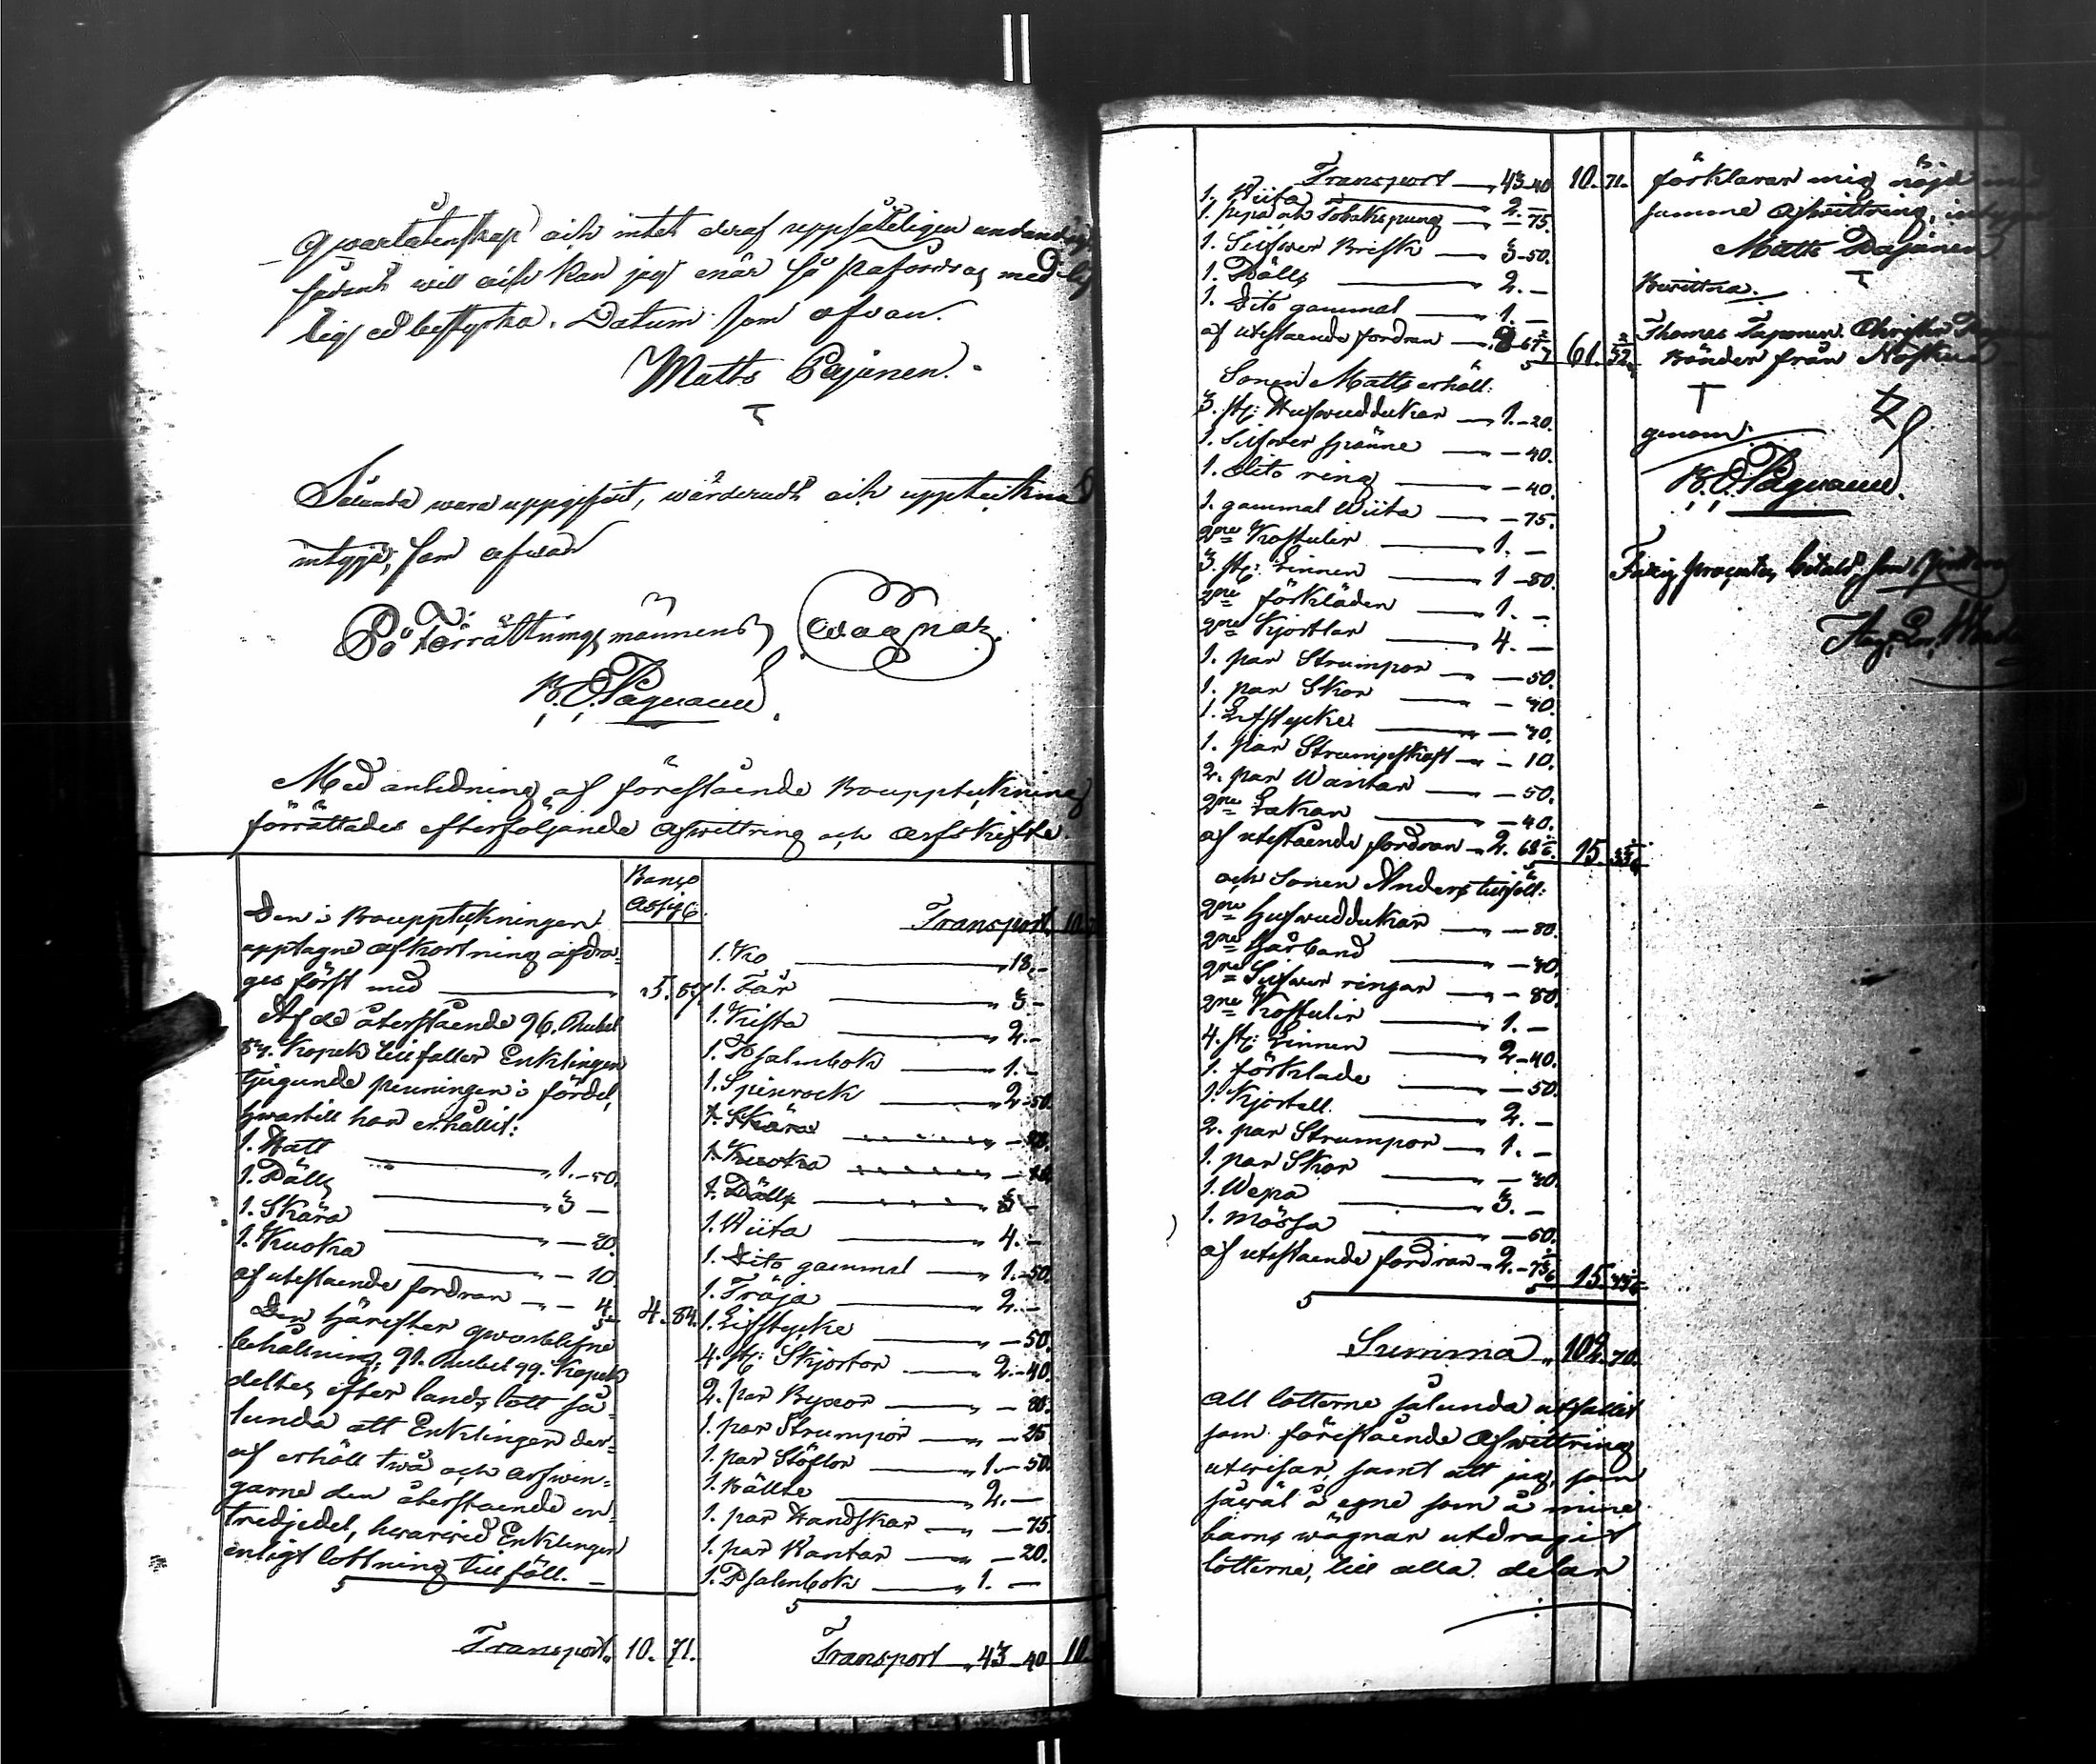 qwarlåtenskap och intet deraf uppsåteligen undando
will och kan jag enär så påfordras med
lig ed bestyrka. Datum som ofvan.
Matts Pajanen.
Sålunda vara uppgifvit, wärderadt och upptecknad
intyga, som ofvan
På Förrättningsmännens wägnar.
Med anledning af förestående Bouppteckning
förrättades efterföljande Afwittring och Arfskifte.
Banco
Assig.
Den i Bouppteckningen
upptagne afkortning afdra-
ges först med 5.87
Af de återstående 96. Rubel
Kopek tillfaller Enklingen
tjugunde penningen i fördel,
hwartill han erhållit:
1. Hatt 1.-50.
1. Pälls 3 -
1. Skära - 20.
1. Kuokka - 10.
af utestående fordran - 4.
4. 84.
Den härefter qwarblefne
behållning, 91. Rubel 99. Kopek
deltes efter lands lott så-
lunda att Enklingen der-
af erhöll twå och arfwin-
garne den återstående en
tredjedel, hwarwid Enklingen
enligt lottning tillföll. -
Transport 10. 71.
Transport 10.
1. Ko 18.-
1. Får 3 -
1. Kista 2.-
1. Psalmbok 1.-
1. Spinrock 2-50.
1. Skära
1. Kuokka
1. Pälls
1. Wiita 4. -
1. Dito gammal 1.-50.
1. Tröja 2. -
1. Lifstycke - 50.
4. st: Skjortor 2.-40.
2. par Byxor - 80.
1. par Strumpor - 25
1. par Stöflor 1.-50.
1. Bällte 2. -
1. par Handskar - 75.
1. par Wantar - 20.
1. Psalmbok 1. -
Transport 43-40 10
Transport 43-40 10. 71.
1. Wiita 2. -
1. pipa och Tobakspung - 75.
1. Silfwer Brisk 3-50.
1. Pälls 2. -
1. Dito gammal 1. -
af utestående fordran
61.
Sonen Matts erhöll:
3. st: Hufwuddukar 1.-20.
1. Silfwer spänne - 40.
1. dito ring - 40.
1. gammal Wiita - 75.
2ne Kostulir 1. -
3. st: Linnen 1-80.
2ne förkläden 1. -
2ne Kjortlar 4. -
1. par Strumpor - 50.
1. par Skor - 40.
1. Lifstycke - 40.
1. par Strumpskaft - 10.
2. par Wantar - 50.
2ne Lakan - 40.
af utestående fordran 2.
15.
och Sonen Anders tillföll:
2ne Hufwuddukar - 80.
2ne Hårband - 40.
2ne Silfwer ringar - 80.
2ne Kostulir 1. -
4. st: Linnen 2-40.
1. förkläde - 50.
1. Kjortell 2. -
2. par Strumpor 1. -
1. par Skor - 40.
1. Wepa 3. -
1. mössa - 60.
af utestående fordran 2.
15.
Summa 102. 70.
Att lotterne sålunda utfallit
som förestående Afwittring
utwisar, samt att jag, som
såwäl å egne som å mine
barns wägnar utdragit
lotterne, till alla delar
förklarar mig nöjd
samma afwittring,
Matts Pajanen
Bewittna.
Thomas Taponen. Christer
Bönder från
genom.
Fattig procenten betald,